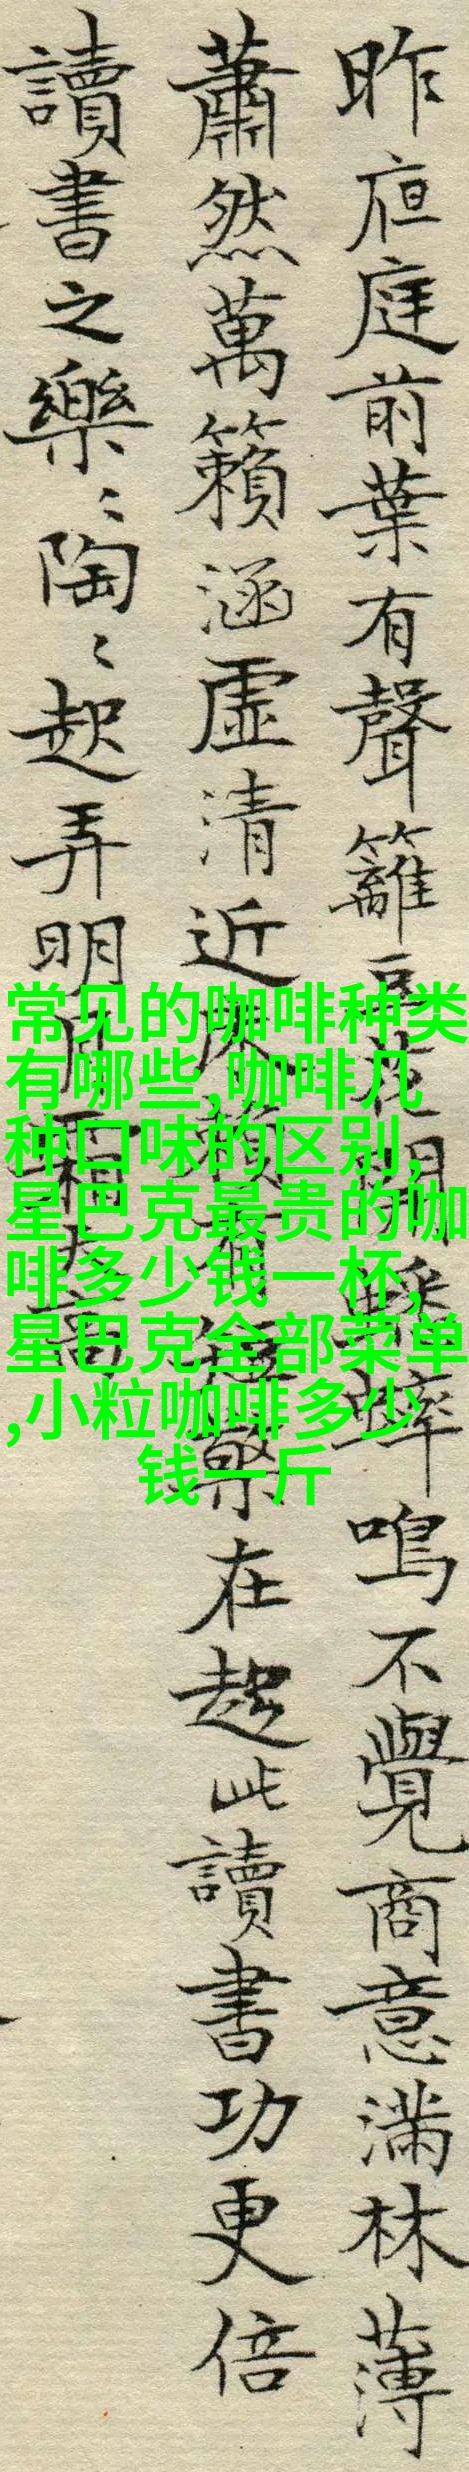 昨夜庭前葉有聲籬豆花開蟋蟀鳴不覺商意滿林薄
蕭然萬籟涵虛清近床賴有短檠在趁此讀書功更倍
讀書之樂〻陶〻起弄明月霜天高
常见的咖啡种类
有哪些,咖啡几
种口味的区别,
星巴克最贵的咖
啡多少钱一杯,
星巴克全部菜单
,小粒咖啡多少
钱一斤